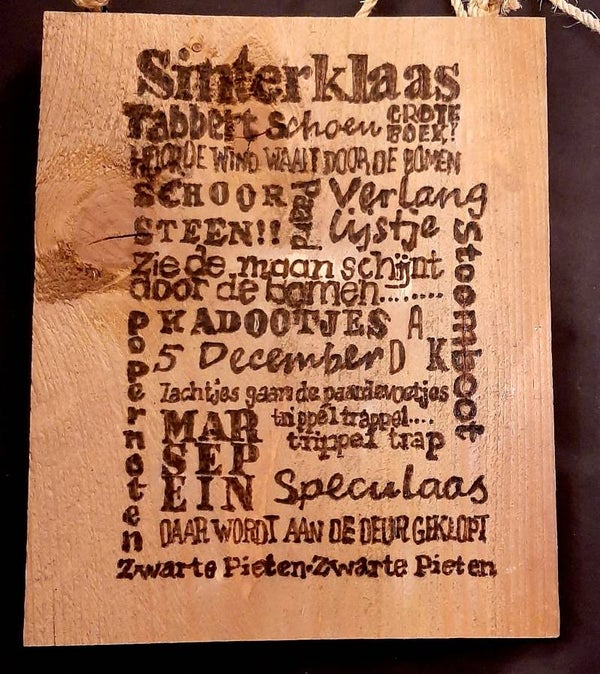 Sinterklaas
Tabbert Schoen GROTE BOEK!
HOOR DE WIND WAAIT DOOR DE BOMEN
SCHOOR
STEEN!!
paard
Verlang
lijstje
Stoomboot
Zie de maan schijnt
door de bomen.........
pepernoten
KADOOTJES A
5 December D K
Zachtjes gaan de paardevoetjes
trippel trappel....
trippel trap
MAR
SEP
EIN
Speculaas
DAAR WORDT AAN DE DEUR GEKLOPT
Zwarte Pieten-Zwarte Pieten